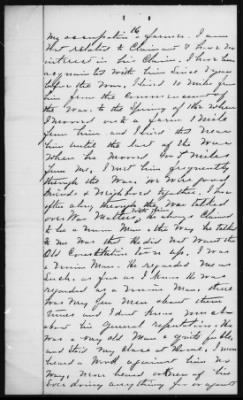 my occupation is a farmer. I am
Not related to Claimant & have no
interest in his Claim. I have been
acquainted with him since 3 years
before the War, I lived 10 Miles from
him from the Commencement of
the War to the Spring of the when
I moved onto a farm 1 Mile
from him and lived Near
him until the last of the War
when he moved Miles
from me. I met him frequently
through the War, we were good
friends & Neighbors together. I have
often along through the War talked
over War Matters with him, he always Claimed
to be a Union Man all the Way, he talked
to me Was that he did Not Want the
Old Constitution torn up. I was
a Union Man. He regarded me as
Such, as far as I know. He was
regarded as a Union Man, there
was Very few Men about there
Union and I don't know much
about his General reputation. He
was a Very old Man & quite feeble,
and staid Very Close at Home, I never
heard a Word against him No
Way, Never heard of his
ever doing anything for or against